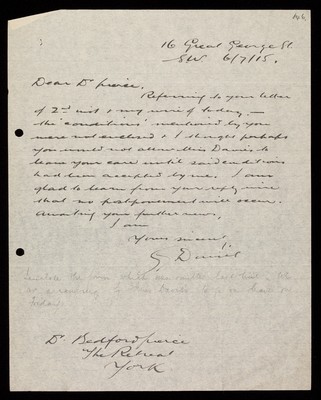 16 Great George St.
SW 6/7/15.
Dear Dr Pierce,
Referring to your letter
of 2nd inst & my wire of today —
the 'conditions' mentioned by you
were not enclosed & I thought perhaps
you would not allow Miss Davis to
leave your care until said conditions
had been accepted by me. I am
glad to learn from your reply wire
that no postponement will occur.
Awaiting your further news,
I am
Yours sincely
Dr Bedford Pierce
The Retreat
York